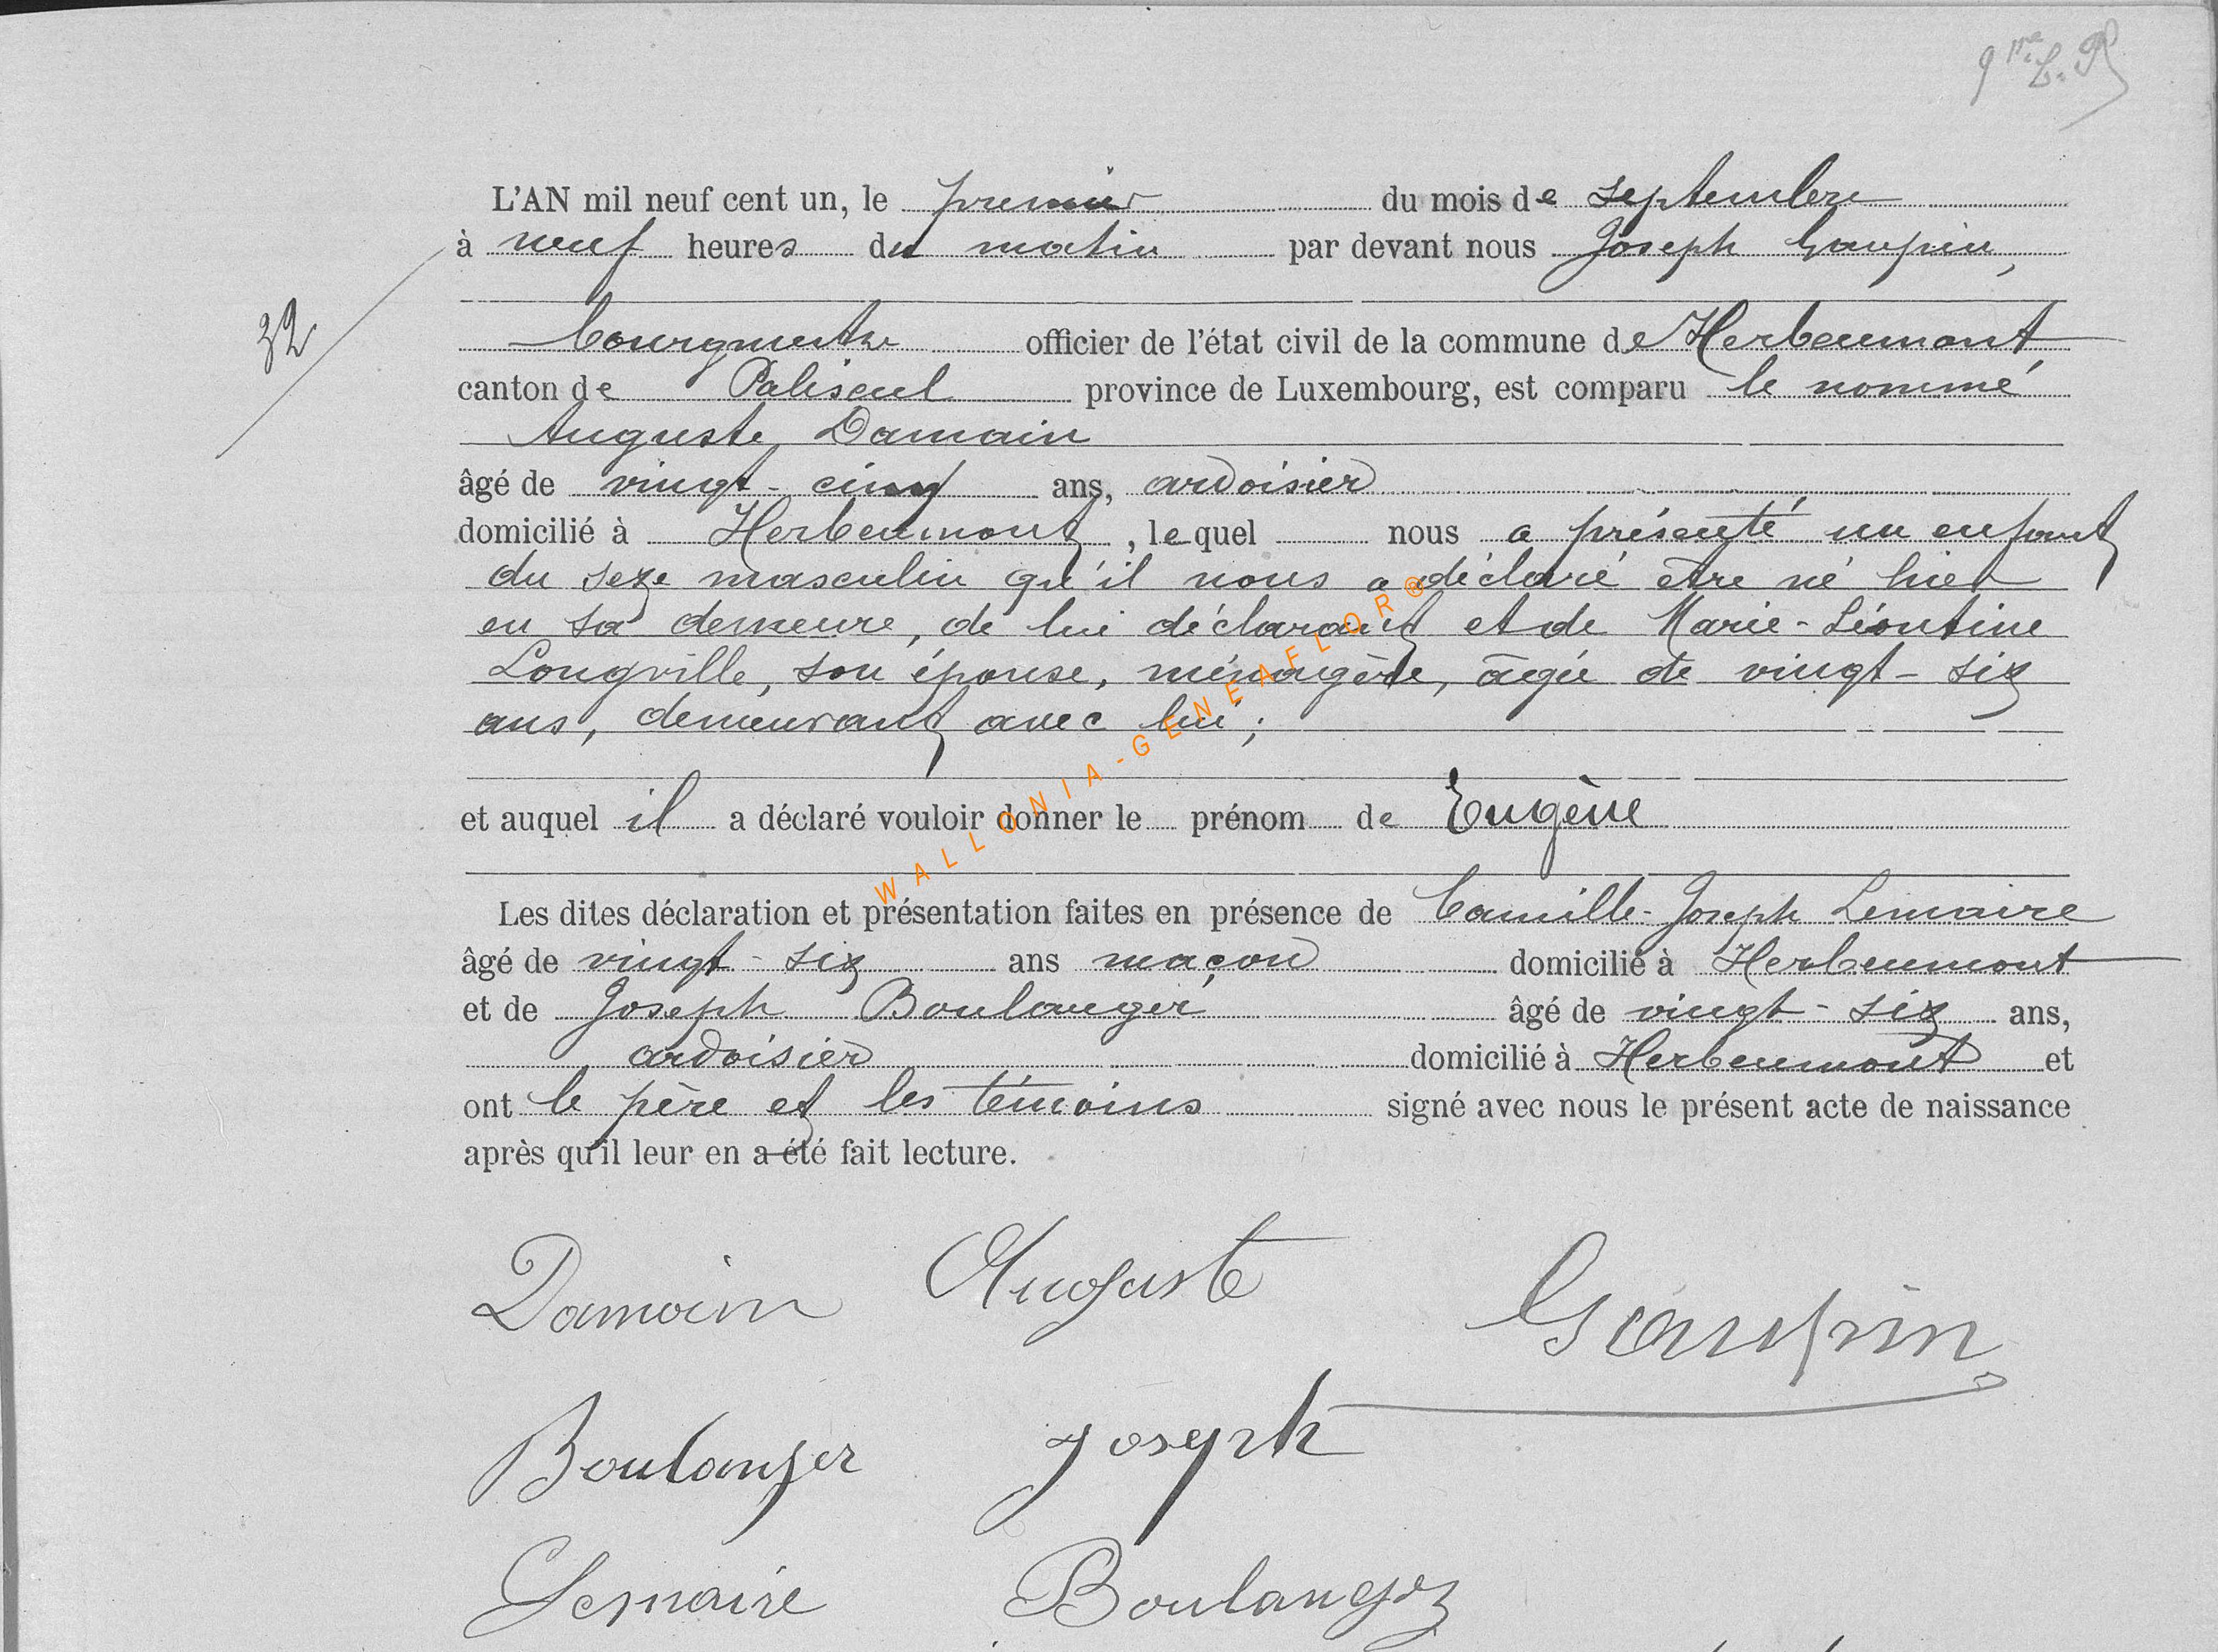 L'AN mil neuf cent un, le premier du mois de septembre
à neuf heures du matin par devant nous Joseph Gaupin,
32
bourgmestre officier de l'état civil de la commune de Herbeumont,
canton de Paliseul province de Luxembourg, est comparu le nommé
Auguste Damain
âgé de vingt-cinq ans, ardoisier
domicilié à Herbeumont, lequel nous a présenté un enfant
du sexe masculin qu'il nous a déclaré être né hier
en sa demeure, de lui déclarant et de Marie-Léontine
Longville, son épouse, ménagère, âgée de vingt-six
ans, demeurant avec lui;
WALLONIA-GENEAFLOR®
et auquel il a déclaré vouloir donner le prénom de Eugène
Les dites déclaration et présentation faites en présence de Camille-Joseph Lemaire
âgé de vingt-six ans maçon domicilié à Herbeumont
et de Joseph Boulanger âgé de vingt-six ans,
ardoisier domicilié à Herbeumont et
ont le père et les témoins signé avec nous le présent acte de naissance
après qu'il leur en a été fait lecture.
Damain Auguste Gaupin
Boulanger Joseph
Lemaire Boulanger